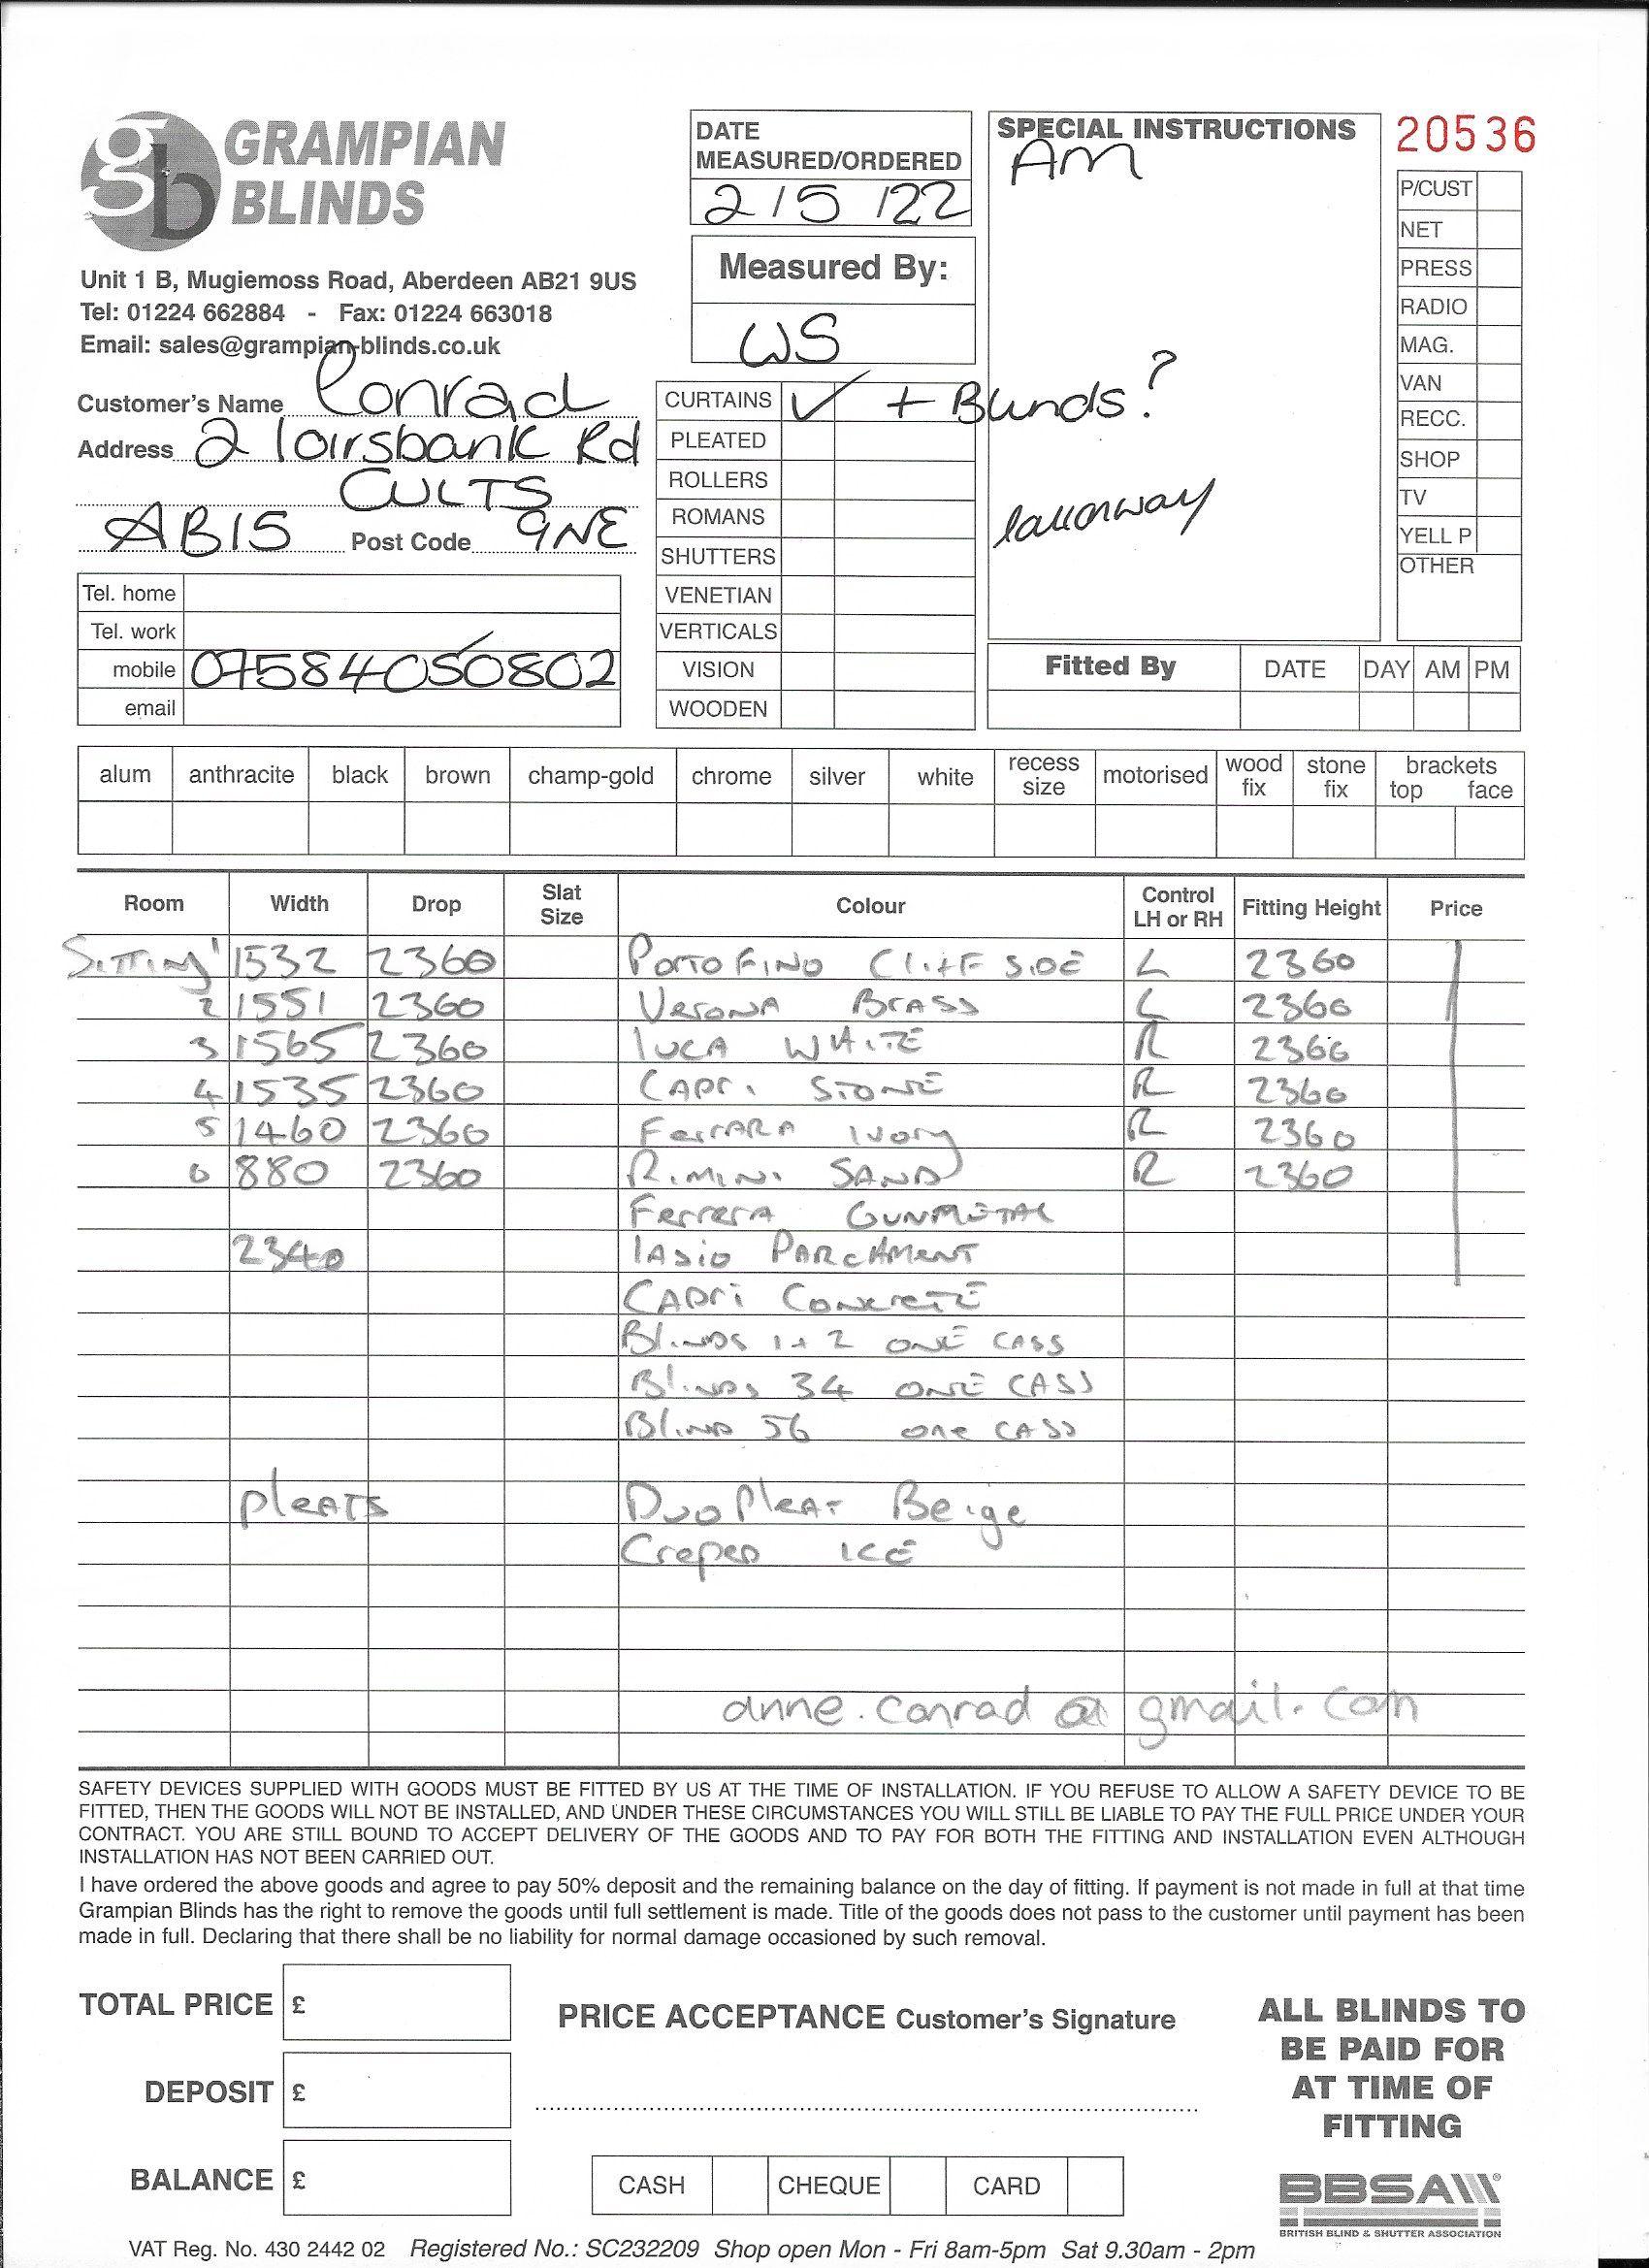 gb GRAMPIAN BLINDS
Unit 1 B, Mugiemoss Road, Aberdeen AB21 9US
Tel: 01224 662884 - Fax: 01224 663018
Email: sales@grampian-blinds.co.uk
Customer's Name Conrad
Address 2 loirsbank Rd
CULTS
AB15 Post Code 9NE
Tel. home
Tel. work
mobile 07584050802
email
DATE MEASURED/ORDERED
2/5/22
Measured By:
WS
CURTAINS ✓ + Blinds?
PLEATED
ROLLERS
ROMANS
SHUTTERS
VENETIAN
VERTICALS
VISION
WOODEN
SPECIAL INSTRUCTIONS
AM
20536
P/CUST
NET
PRESS
RADIO
MAG.
VAN
RECC.
SHOP
TV
YELL P
OTHER
Fitted By DATE DAY AM PM
alum anthracite black brown champ-gold chrome silver white recess size motorised wood fix stone fix brackets top face
Room Width Drop Slat Size Colour Control LH or RH Fitting Height Price
Sitting 1 1532 2360 Portofino Cliff Side L 2360
2 1551 2360 Verona Brass L 2360
3 1565 2360 Luca White R 2360
4 1535 2360 Capri Stone R 2360
5 1460 2360 Ferrara Ivory R 2360
6 880 2360 Rimini Sand R 2360
Ferrera Gunmetal
2340 Lasio Parchment
Capri Concrete
Blinds 1+2 one cass
Blinds 34 one cass
Blind 56 one cass
pleats Duo Pleat Beige
Creped Ice
anne.conrad@gmail.com
SAFETY DEVICES SUPPLIED WITH GOODS MUST BE FITTED BY US AT THE TIME OF INSTALLATION. IF YOU REFUSE TO ALLOW A SAFETY DEVICE TO BE
FITTED, THEN THE GOODS WILL NOT BE INSTALLED, AND UNDER THESE CIRCUMSTANCES YOU WILL STILL BE LIABLE TO PAY THE FULL PRICE UNDER YOUR
CONTRACT. YOU ARE STILL BOUND TO ACCEPT DELIVERY OF THE GOODS AND TO PAY FOR BOTH THE FITTING AND INSTALLATION EVEN ALTHOUGH
INSTALLATION HAS NOT BEEN CARRIED OUT.
I have ordered the above goods and agree to pay 50% deposit and the remaining balance on the day of fitting. If payment is not made in full at that time
Grampian Blinds has the right to remove the goods until full settlement is made. Title of the goods does not pass to the customer until payment has been
made in full. Declaring that there shall be no liability for normal damage occasioned by such removal.
TOTAL PRICE £
DEPOSIT £
BALANCE £
PRICE ACCEPTANCE Customer's Signature
CASH CHEQUE CARD
ALL BLINDS TO
BE PAID FOR
AT TIME OF
FITTING
BBSA
BRITISH BLIND & SHUTTER ASSOCIATION
VAT Reg. No. 430 2442 02 Registered No.: SC232209 Shop open Mon - Fri 8am-5pm Sat 9.30am - 2pm